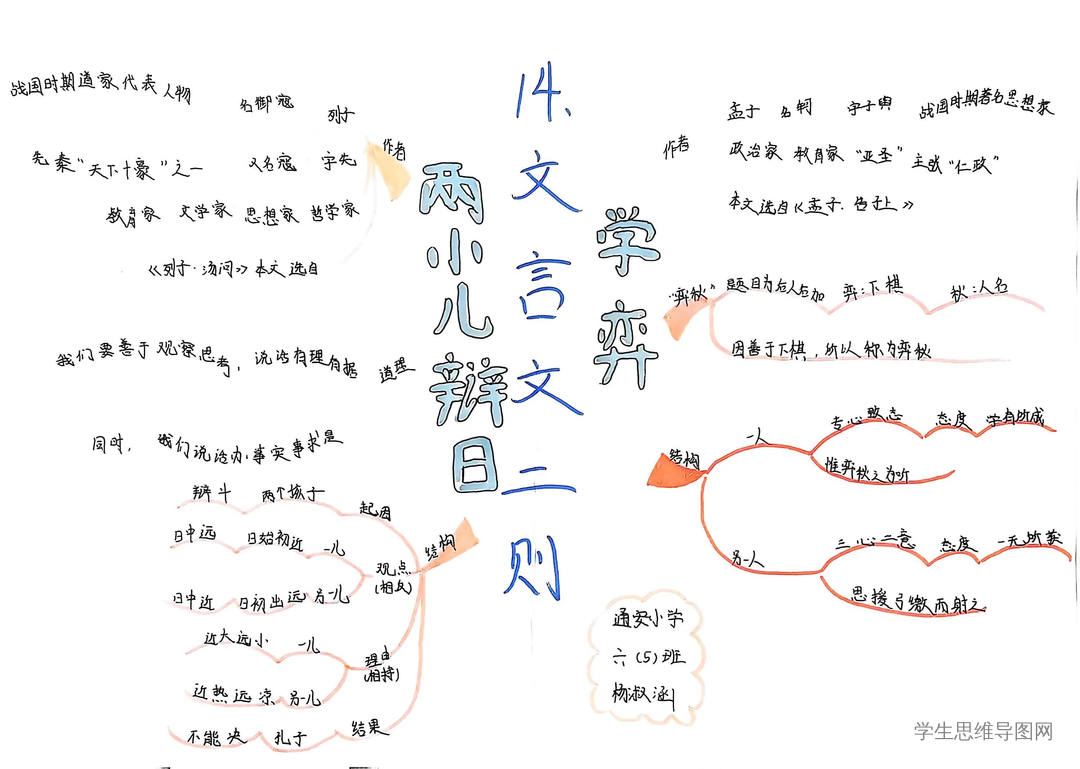 14、文言文二则
两小儿辩日
作者
列子
名御寇
战国时期道家代表人物
又名寇 字先
先秦“天下十豪”之一
教育家 文学家 思想家 哲学家
《列子·汤问》本文选自
道理
我们要善于观察思考，说话有理有据
同时，我们说话办事实事求是
结构
起因
两个孩子
辩斗
观点
(相反)
一儿
日始初近
日中远
另一儿
日初出远
日中近
理由
(相持)
一儿
近大远小
另一儿
近热远凉
结果
孔子
不能决
学弈
作者
孟子 名轲 字子舆 战国时期著名思想家
政治家 教育家 “亚圣” 主张“仁政”
本文选自《孟子·告子上》
“弈秋” 题目为后人与加 弈:下棋 秋:人名
因善于下棋，所以称为弈秋
结构
一人
专心致志 态度 学有所成
惟弈秋之为听
另一人
三心二意 态度 一无所获
思援弓缴而射之
通安小学
六(5)班
杨淑涵
学生思维导图网